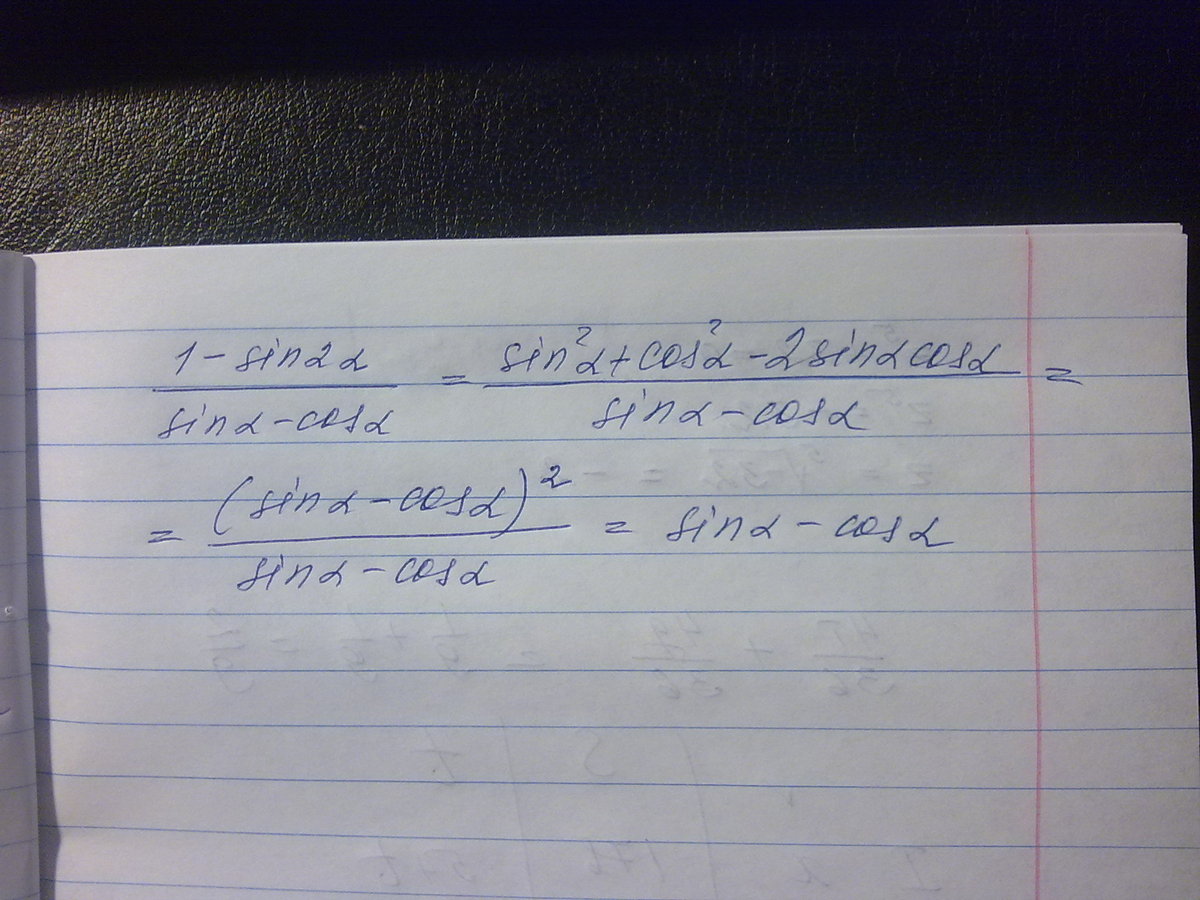 (1 - sin2α)/(sinα - cosα) = (sin²α + cos²α - 2sinαcosα)/(sinα - cosα) =
= (sinα - cosα)²/(sinα - cosα) = sinα - cosα